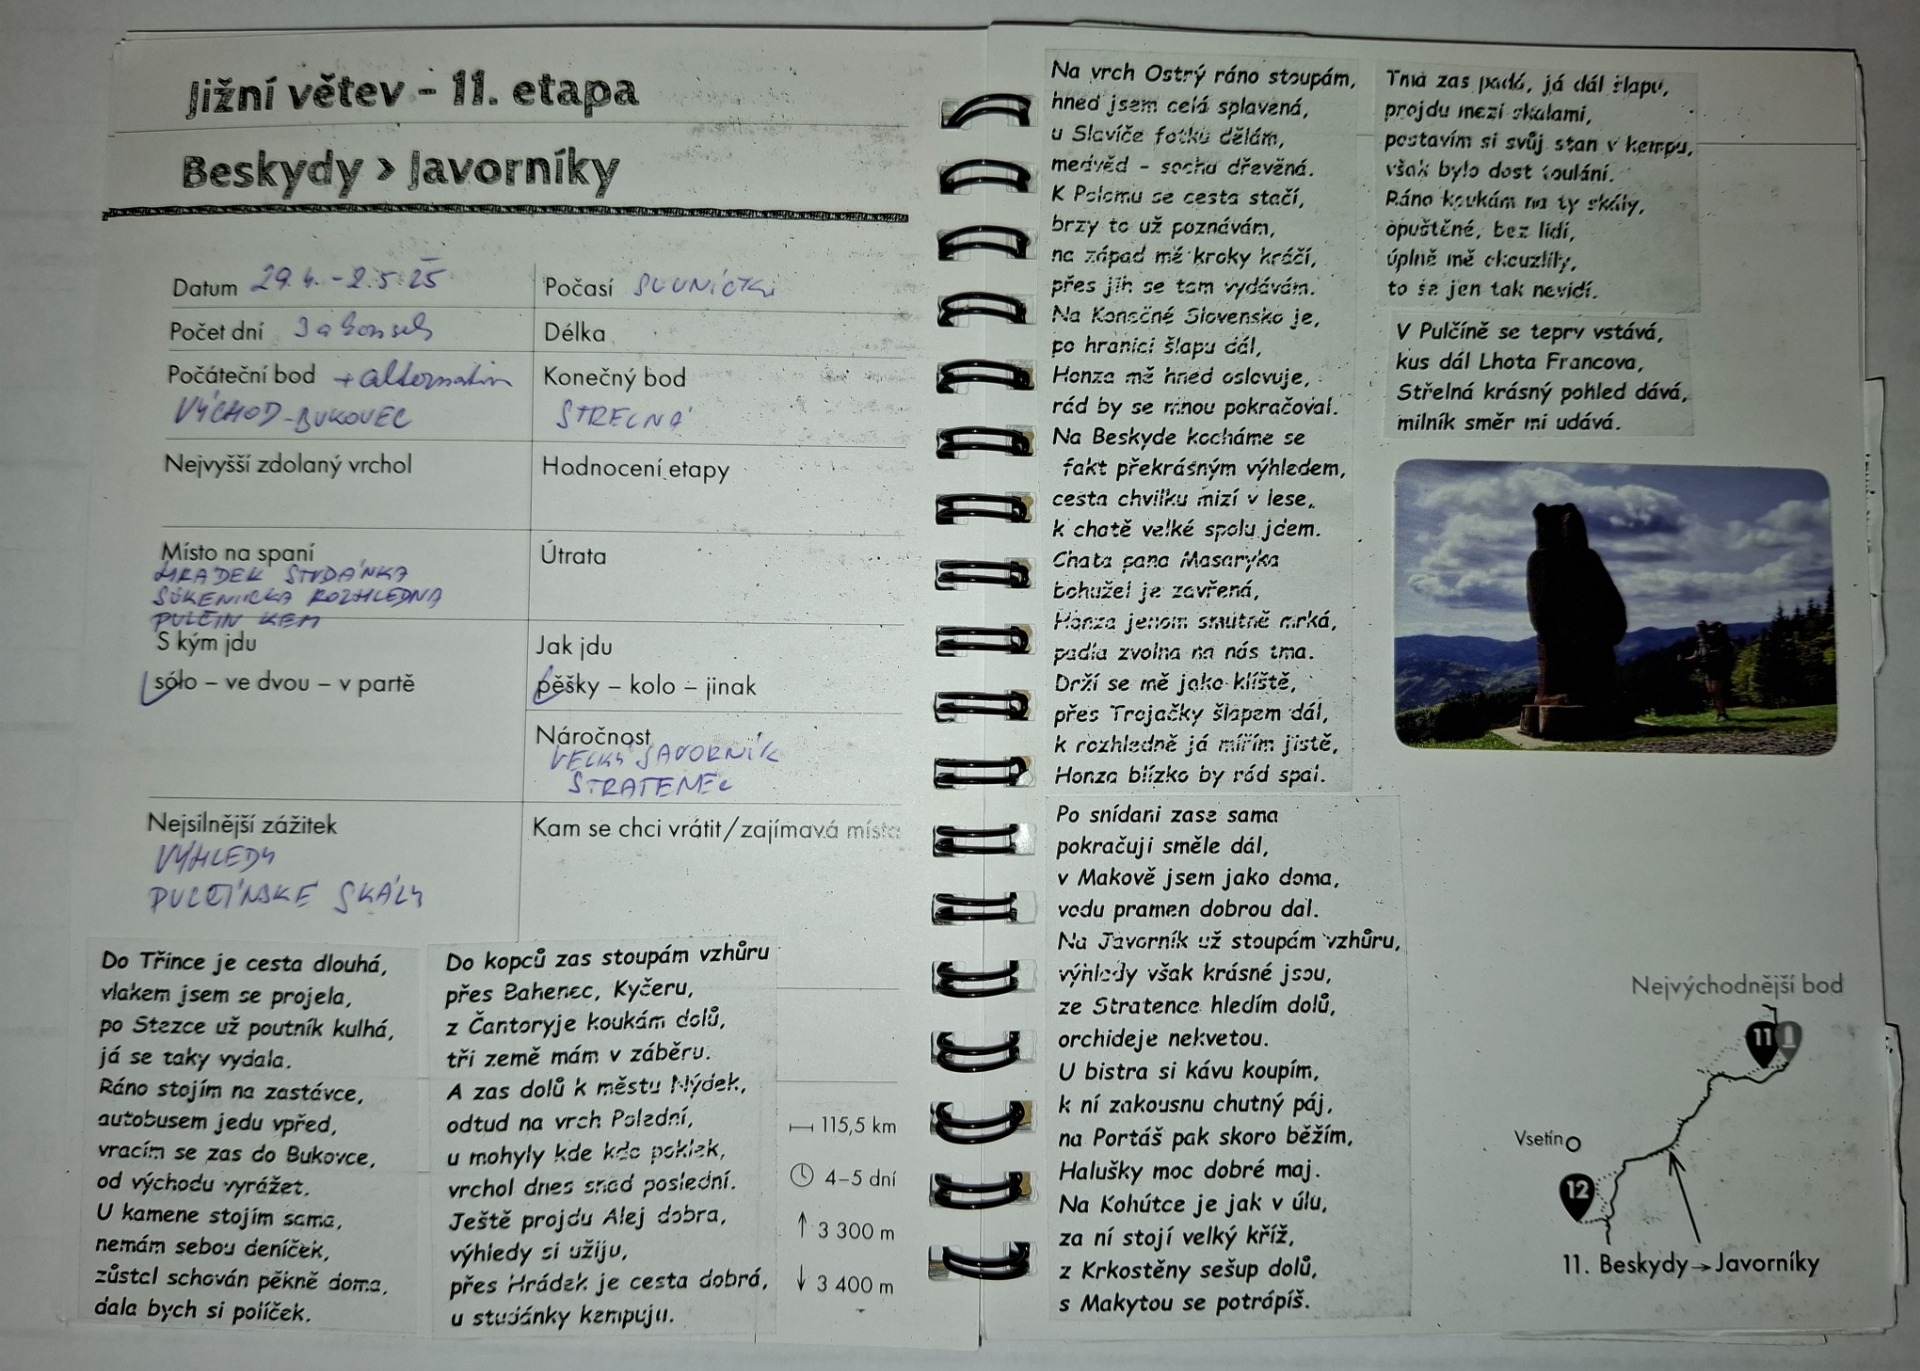 Jižní větev – 11. etapa
Beskydy > Javorníky
Datum 29.4. – 2.5.25
Počasí SLUNÍČKO
Počet dní 3 a
Délka
Počáteční bod + alternativ
VÝCHOD – BUKOVEC
Konečný bod
STŘELNÁ
Nejvyšší zdolaný vrchol
Hodnocení etapy
Místo na spaní
HRÁDEK STUDÁNKA
SÚKENICKA ROZHLEDNA
PULČÍN KEM
Útrata
S kým jdu
sólo – ve dvou – v partě
Jak jdu
pěšky – kolo – jinak
Náročnost
VELKÝ JAVORNÍK
STRATENEC
Nejsilnější zážitek
VÝHLEDY
PULČÍNSKÉ SKÁLY
Kam se chci vrátit/zajímavá místa
Do Třince je cesta dlouhá,
vlakem jsem se projela,
po Stezce už poutník kulhá,
já se taky vydala.
Ráno stojím na zastávce,
autobusem jedu vpřed,
vracím se zas do Bukovce,
od východu vyrážet.
U kamene stojím sama,
nemám sebou deníček,
zůstal schován pěkně doma,
dala bych si políček.
Do kopců zas stoupám vzhůru
přes Bahenec, Kyčeru,
z Čantoryje koukám dolů,
tři země mám v záběru.
A zas dolů k městu Nýdek,
odtud na vrch Polední,
u mohyly kde kdo poklek,
vrchol dnes snad poslední.
Ještě projdu Alej dobra,
výhledy si užiju,
přes Hrádek je cesta dobrá,
u studánky kempuju.
115,5 km
4–5 dní
↑ 3 300 m
↓ 3 400 m
Na vrch Ostrý ráno stoupám,
hned jsem celá splavená,
u Slavíče fotku dělám,
medvěd – socha dřevěná.
K Polomu se cesta stačí,
brzy to už poznávám,
na západ mé kroky kráčí,
přes jih se tam vydávám.
Na Konečné Slovensko je,
po hranici šlapu dál,
Honza mě hned oslovuje,
rád by se mnou pokračoval.
Na Beskyde kocháme se
fakt překrásným výhledem,
cesta chvilku mizí v lese,
k chatě velké spolu jdem.
Chata pana Masaryka
bohužel je zavřená,
Honza jenom smutně mrká,
padla zvolna na nás tma.
Drží se mě jako klíště,
přes Trojačky šlapem dál,
k rozhledně já mířím jistě,
Honza blízko by rád spal.
Po snídani zase sama
pokračuji směle dál,
v Makově jsem jako doma,
vodu pramen dobrou dal.
Na Javorník už stoupám vzhůru,
výhledy však krásné jsou,
ze Stratence hledím dolů,
orchideje nekvetou.
U bistra si kávu koupím,
k ní zakousnu chutný páj,
na Portáš pak skoro běžím,
Halušky moc dobré maj.
Na Kohútce je jak v úlu,
za ní stojí velký kříž,
z Krkostěny sešup dolů,
s Makytou se potrápíš.
Tma zas padá, já dál šlapu,
projdu mezi skalami,
postavím si svůj stan v kempu,
však bylo dost toulání.
Ráno koukám na ty skály,
opuštěné, bez lidí,
úplně mě okouzlily,
to se jen tak nevidí.
V Pulčíně se tepry vstává,
kus dál Lhota Francova,
Střelná krásný pohled dává,
milník směr mi udává.
Nejvýchodnější bod
11
Vsetín
12
11. Beskydy→Javorníky